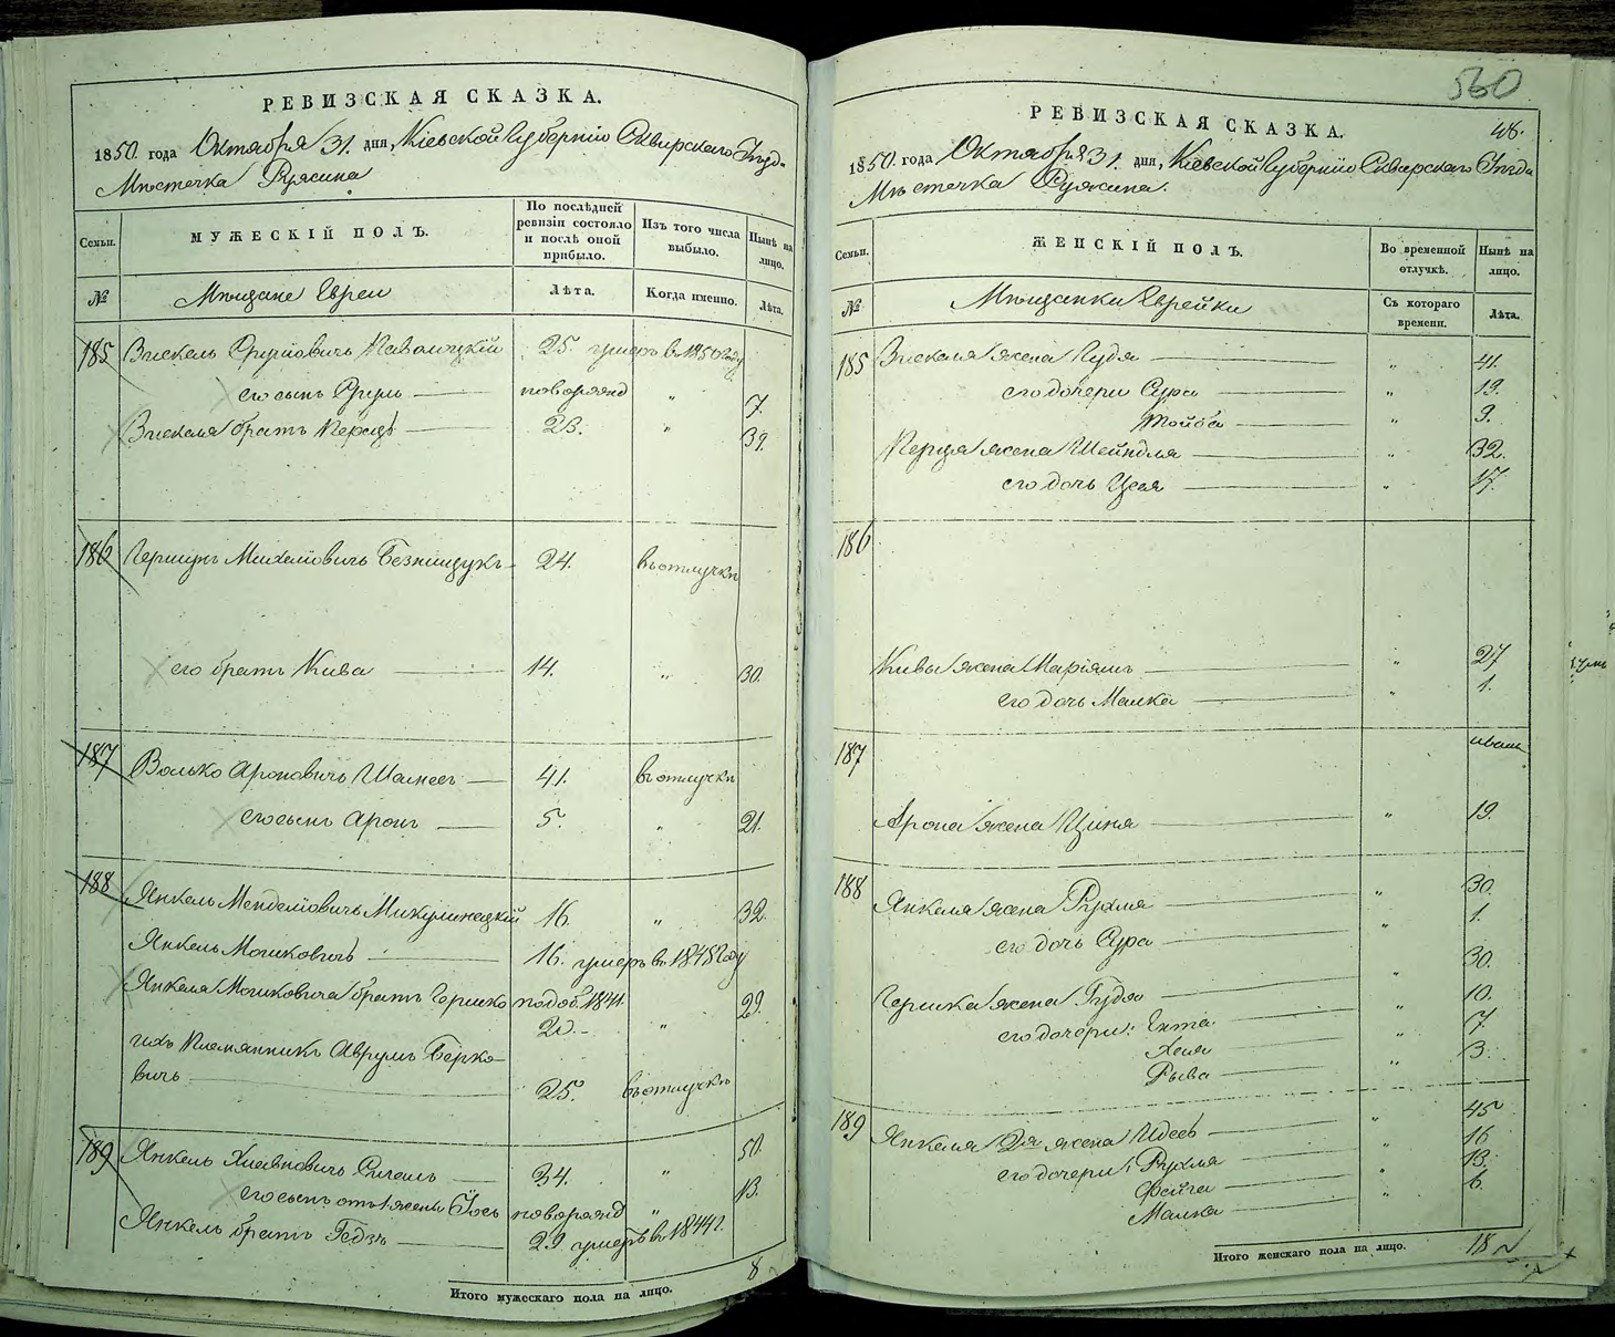 РЕВИЗСКАЯ СКАЗКА.
1850. года Октября 31. дня, Кіевской Губерніи Сквирскаго Уѣзда
Мѣстечка Ружина
Семьи.
МУЖЕСКІЙ ПОЛЪ.
По послѣдней ревизіи состояло и послѣ оной прибыло.
Изъ того числа выбыло.
Нынѣ на лицо.
№
Мѣщане Евреи
Лѣта.
Когда именно.
Лѣта.
185 Паволоцкій 25. умеръ въ 1850 году
его сынъ Сруль новорожд " 7.
братъ Перецъ 23. " 39.
186 Гершунъ Михелiовичъ 24. въ отлучкѣ
его братъ Кива 14. " 30.
187 Волько Ароновичъ 41. въ отлучкѣ
его сынъ Аронъ 5. " 21.
188 Янкель Менделiовичъ Микулинецкій 16. " 32.
Янкель Мошковичъ 16. умеръ въ 1848 году
Янкеля Мошковича братъ Гершко 1841. 29.
20. "
ихъ племянникъ Аврумъ Берко-
вичъ 25. въ отлучкѣ
189 Янкель 34. " 50.
его сынъ отъ 1 жены Іось новорожд " 13.
Янкель братъ 29. умеръ въ 1844 г.
Итого мужескаго пола на лицо. 8
560
48.
РЕВИЗСКАЯ СКАЗКА.
1850. года Октября 31. дня, Кіевской Губерніи Сквирскаго Уѣзда
Мѣстечка Ружина.
Семьи.
ЖЕНСКІЙ ПОЛЪ.
Во временной отлучкѣ.
Нынѣ на лицо.
№
Мѣщанки Еврейки
Съ котораго времени.
Лѣта.
185 жена Гудя " 41.
его дочери Сура " 19.
Тойба " 9.
Перца жена Шейндля " 32.
его дочь " 17.
186
Кивы жена Маріямъ " 27
его дочь Малка " 1.
187
Арона жена Циня " 19.
188 Янкеля жена Рухля " 30.
его дочь Сура " 1.
Гершка жена Гудя " 30.
его дочери: Ента " 10.
Хая " 7
Рыва " 3.
189 Янкеля 2я жена " 45
его дочери: Рухля " 16
Файга " 13.
Малка " 6.
Итого женскаго пола на лицо. 18